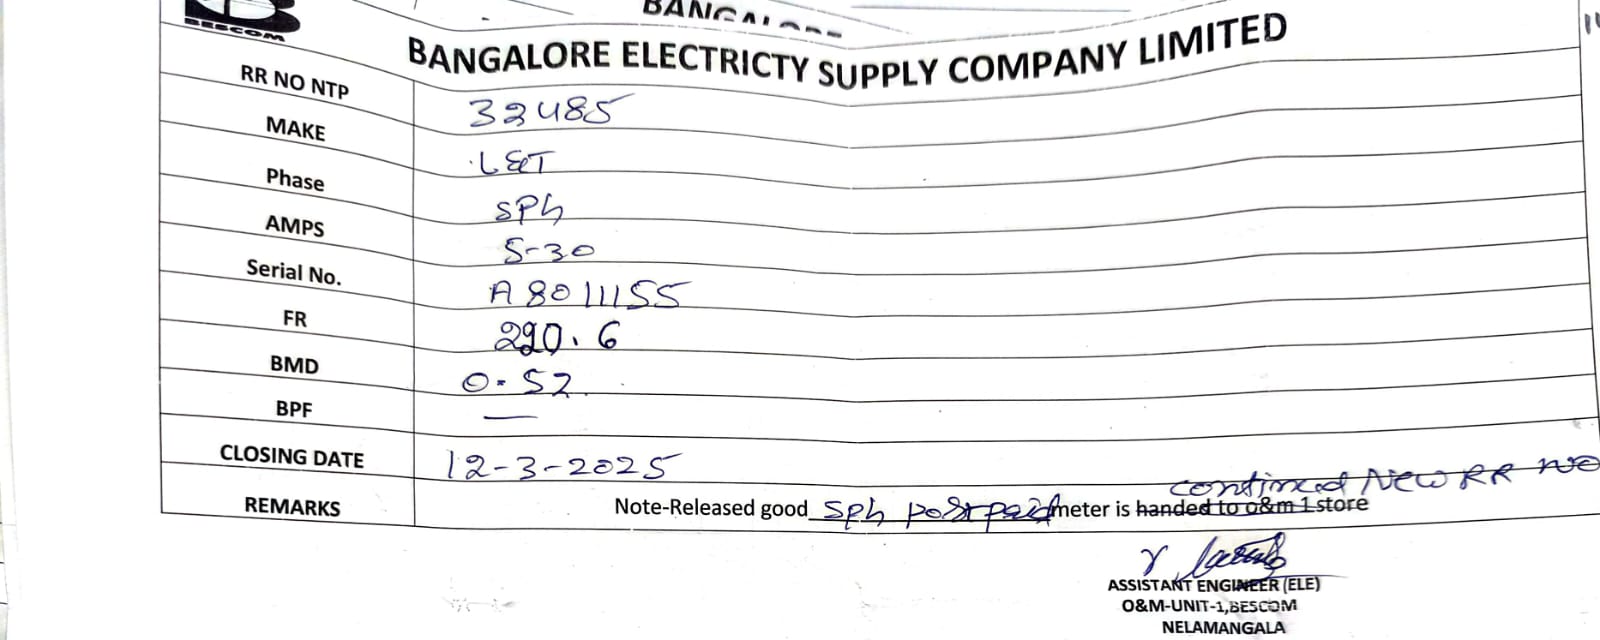 BESCOM
BANGALORE
BANGALORE ELECTRICTY SUPPLY COMPANY LIMITED
RR NO NTP 32485
MAKE L&T
Phase SPh
AMPS 5-30
Serial No. A8011155
FR 290.6
BMD 0.52
BPF —
CLOSING DATE 12-3-2025
continued NEW RR NO
REMARKS Note-Released good Sph postpaid meter is handed to o&m 1 store
ASSISTANT ENGINEER (ELE)
O&M-UNIT-1,BESCOM
NELAMANGALA